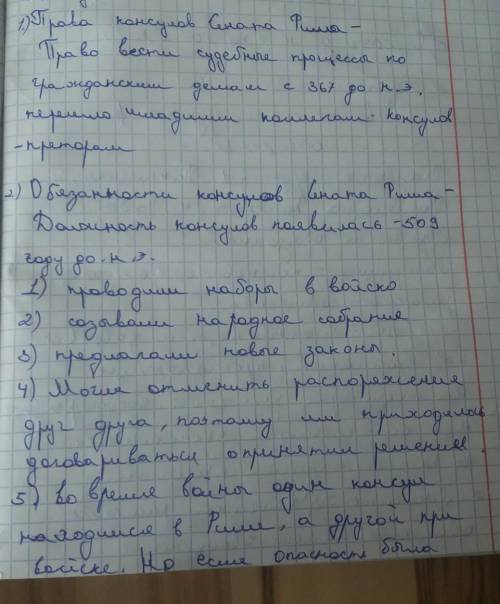 1) Права консулов Сената Рима -
Право вести судебные процессы по
гражданским делам с 367 до н.э.
перешло младшим коллегам консулов
- преторам
2) Обязанности консулов Сената Рима -
Должность консулов появилась - 509
году до н.э.
1) проводили наборы в войско
2) созывали народное собрание
3) предлагали новые законы.
4) Могли отменить распоряжения
друг друга, поэтому им приходилось
договариваться о принятии решения.
5) во время войны один консул
находился в Риме, а другой при
войске. Но если опасность была